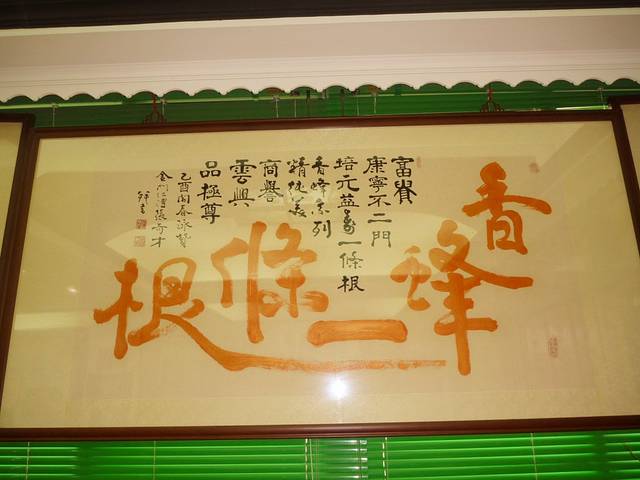 香蜂一條根
富貴
康寧不二門
培元益壽一條根
香蜂系列
精緻美
商譽
雲興
品極尊
乙酉開春詠贊
金門仁德張奇才